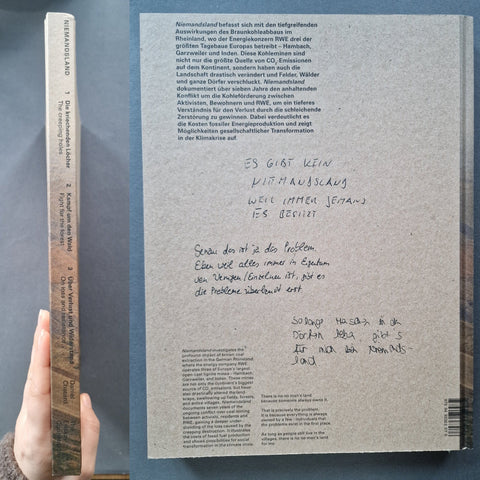 NIEMANDSLAND
1 Die kriechenden Löcher
The creeping holes
2 Kampf um den Wald
Fight for the forest
3 Über Verlust und Widerstand
On loss and resistance
Daniel
Chatard
Niemandsland befasst sich mit den tiefgreifenden
Auswirkungen des Braunkohleabbaus im
Rheinland, wo der Energiekonzern RWE drei der
größten Tagebaue Europas betreibt – Hambach,
Garzweiler und Inden. Diese Kohleminen sind
nicht nur die größte Quelle von CO₂ Emissionen
auf dem Kontinent, sondern haben auch die
Landschaft drastisch verändert und Felder, Wälder
und ganze Dörfer verschluckt. Niemandsland
dokumentiert über sieben Jahre den anhaltenden
Konflikt um die Kohleförderung zwischen
Aktivisten, Bewohnern und RWE, um ein tieferes
Verständnis für den Verlust durch die schleichende
Zerstörung zu gewinnen. Dabei verdeutlicht es
die Kosten fossiler Energieproduktion und zeigt
Möglichkeiten gesellschaftlicher Transformation
in der Klimakrise auf.
ES GIBT KEIN
NIEMANDSLAND
WEIL IMMER JEMAND
ES BESITZT
Genau das ist ja das Problem.
Eben weil alles immer in Eigentum
von Wenigen/Einzelnen ist, gibt es
die Probleme überhaupt erst.
Solange Menschen in den
Dörfern leben, gibt's
für mich kein Niemands-
land
Niemandsland investigates the
profound impact of brown coal
extraction in the German Rhineland,
where the energy company RWE
operates three of Europe's largest
open-cast lignite mines – Hambach,
Garzweiler, and Inden. These mines
are not only the continent's biggest
source of CO₂ emissions, but have
also drastically altered the land-
scape, swallowing up fields, forests,
and entire villages. Niemandsland
documents seven years of the
ongoing conflict over coal mining
between activists, residents and
RWE, gaining a deeper under-
standing of the loss caused by the
creeping destruction. It illustrates
the costs of fossil fuel production
and shows possibilities for social
transformation in the climate crisis.
There is no no man's land
because someone always owns it.
That is precisely the problem.
It is because everything is always
owned by a few / individuals that
the problems exist in the first place.
As long as people still live in the
villages, there is no no man's land
for me.